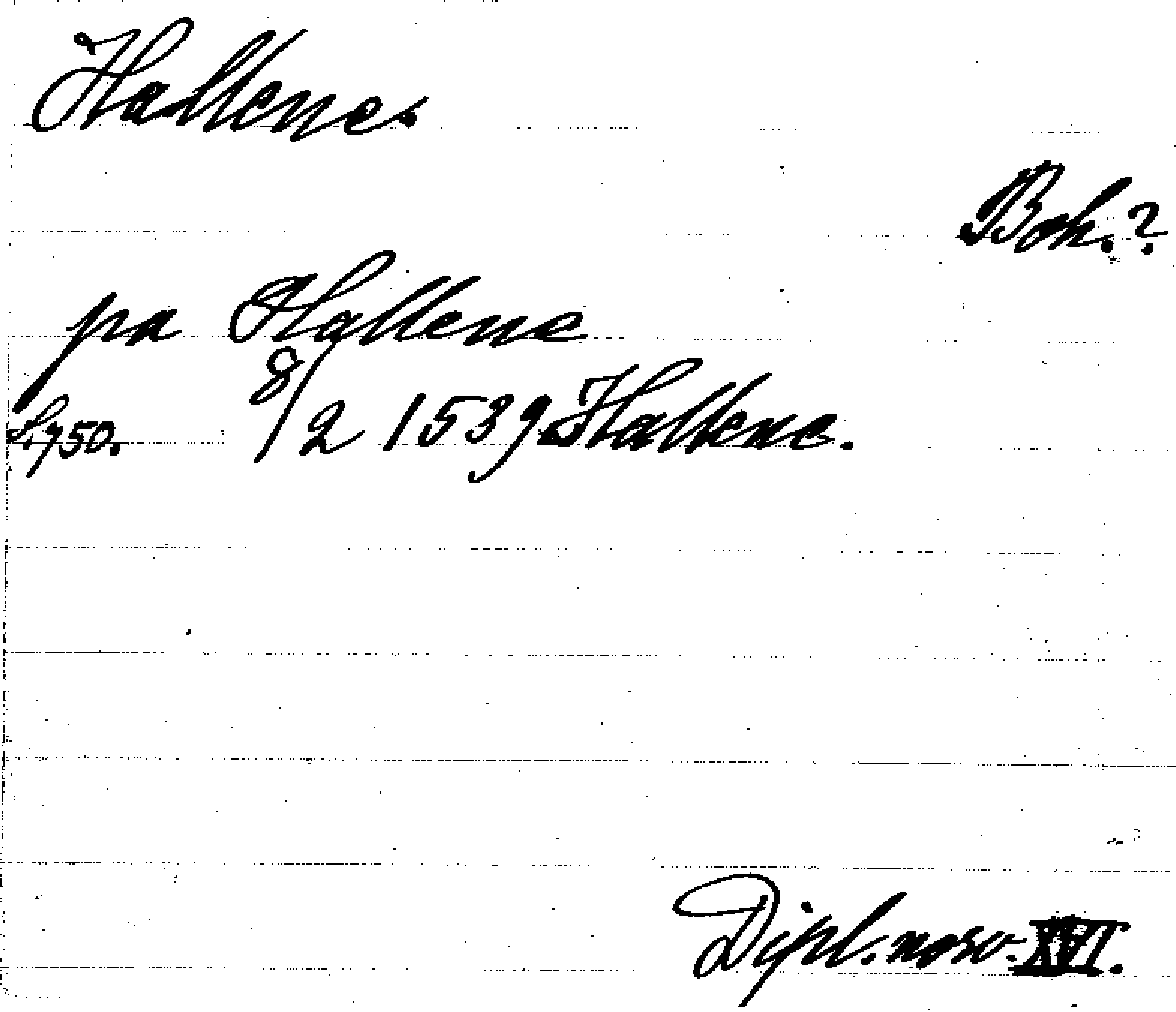 Hallene.
Boh.?
pa Hallene
S. 750. 8/2 1539 Hallene.
Dipl. norv. XVI.